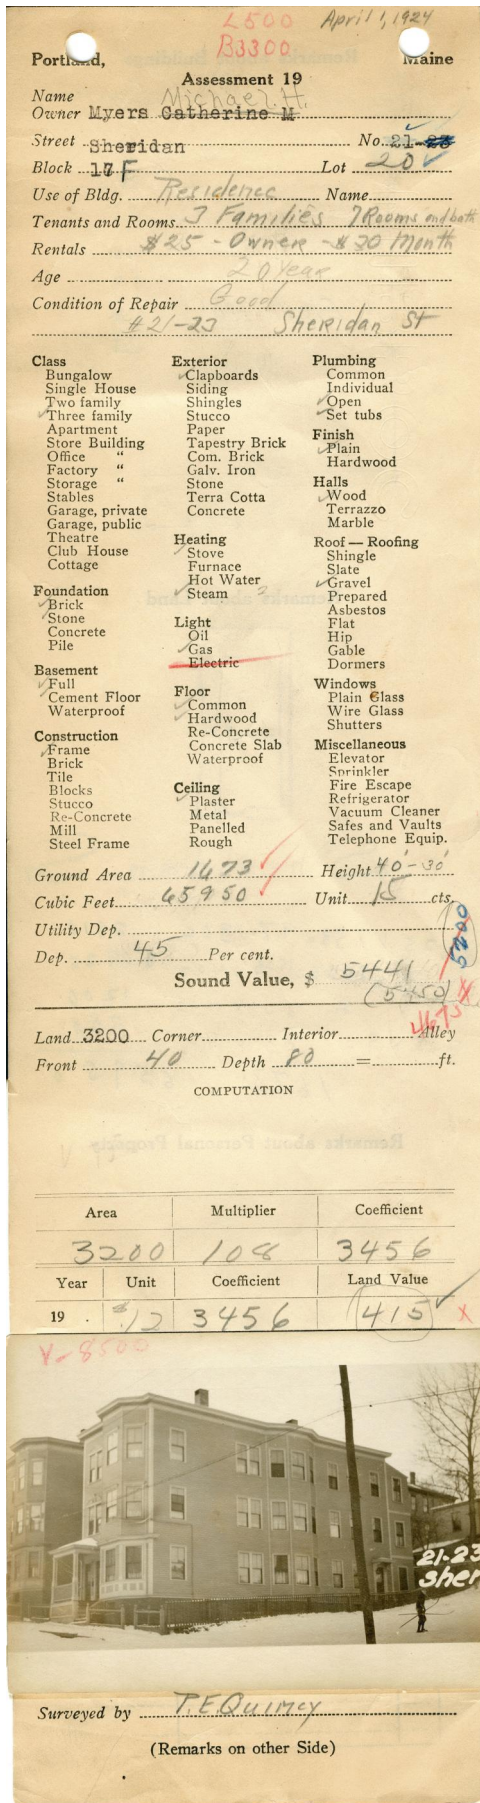 L500 April 1, 1924
B3300
Portland, Maine
Assessment 19
Name Michael. H.
Owner Myers Catherine M
Street Sheridan No. 21-23
Block 17 F Lot 20
Use of Bldg. Residence Name
Tenants and Rooms 3 Families 7 Rooms and bath
Rentals $25 - Owner - $30 Month
Age 20 Year
Condition of Repair Good
#21-23 Sheridan St
Class
Bungalow
Single House
Two family
Three family
Apartment
Store Building
Office "
Factory "
Storage "
Stables
Garage, private
Garage, public
Theatre
Club House
Cottage
Foundation
Brick
Stone
Concrete
Pile
Basement
Full
Cement Floor
Waterproof
Construction
Frame
Brick
Tile
Blocks
Stucco
Re-Concrete
Mill
Steel Frame
Exterior
Clapboards
Siding
Shingles
Stucco
Paper
Tapestry Brick
Com. Brick
Galv. Iron
Stone
Terra Cotta
Concrete
Heating
Stove
Furnace
Hot Water
Steam
Light
Oil
Gas
Electric
Floor
Common
Hardwood
Re-Concrete
Concrete Slab
Waterproof
Ceiling
Plaster
Metal
Panelled
Rough
Plumbing
Common
Individual
Open
Set tubs
Finish
Plain
Hardwood
Halls
Wood
Terrazzo
Marble
Roof — Roofing
Shingle
Slate
Gravel
Prepared
Asbestos
Flat
Hip
Gable
Dormers
Windows
Plain Glass
Wire Glass
Shutters
Miscellaneous
Elevator
Sprinkler
Fire Escape
Refrigerator
Vacuum Cleaner
Safes and Vaults
Telephone Equip.
Ground Area 1673 Height 40'-30'
Cubic Feet 65950 Unit 15 cts.
Utility Dep. 5200
Dep. 45 Per cent.
Sound Value, $ 5441
(5450)
4675
Land 3200 Corner Interior Alley
Front 40 Depth 80 = ft.
COMPUTATION
Area Multiplier Coefficient
3200 108 3456
Year Unit Coefficient Land Value
19 . $.12 3456 415
V-8500
21-23
Sher
Surveyed by P.E. Quimcy
(Remarks on other Side)